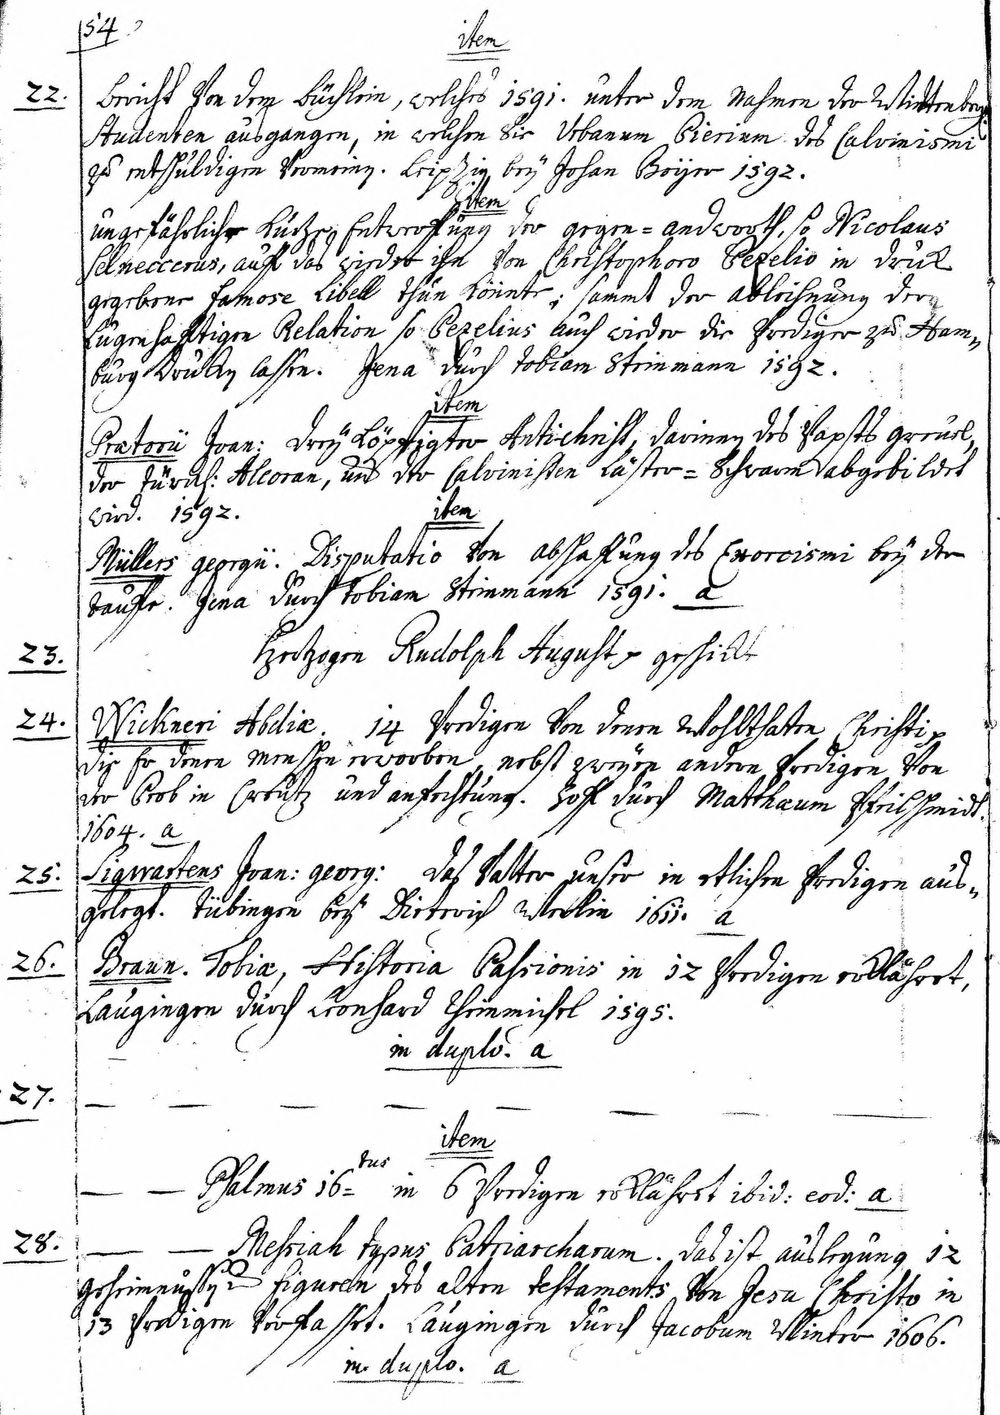 54.
item
22. Bericht Von dem büchlein, welches 1591. unter dem Nahmen der Wittenberg.
Studenten ausgangen, in welchen Sie Urbanum Pierium des Calvinismi
zu entschuldigen Vermeinen. Leipzig bey Johan Beyer 1592.
item
ungefährlicher kurzer Entwerffung der gegen=andworth, so Nicolaus
Selneccerus, auff das wieder ihn Von Christophoro Pezelio in druck
gegebene famose Libell thun könnte; sammt der ableihnung der
Lügenhafftigen Relation so Pezelius auch wieder die Prediger zu Ham=
burg drucken lassen. Jena durch tobiam Steinmann 1592.
item
Prætorii Joan: Drey köpffigter Antichrist, darinnen des Papsts greuel,
der türck: Alcoran, und der Calvinisten Läster=Schwarm abgebildet
wird. 1592.
item
Müllers georgii. Disputatio Von abschaffung des Exorcismi bey der
tauffe. Jena durch tobiam Steinmann 1591. a
23. Hertzogen Rudolph August geschickt
24. Wickneri Abdiæ. 14 Predigen Von denen Wohlthaten Christi,
die Er denen Menschen erworben, nebst zweyen andern Predigen Von
der Prob in Creutz und anfechtung. Hoff durch Matthæum Pfeilschmidt.
1604. a
25. Sigwartens Joan: georg: das Vatter unser in etlichen Predigen aus=
gelegt. tübingen bey Dieterich Werlin 1611. a
26. Braun. Tobiæ, Historia Passionis in 12 Predigen erklährt,
Laugingen durch Leonhard Rheinmichel 1595.
in duplo. a
27. — — — — — — —
item
— — Psalmus 16=tus in 6 Predigen erklährt ibid: eod: a
28. — — Messiah typus Patriarcharum. das ist auslegung 12
geheimnuss figuren des alten testaments Von Jesu Christo in
13 Predigen Verfasset. Laugingen durch Jacobum Winter 1606.
in duplo. a